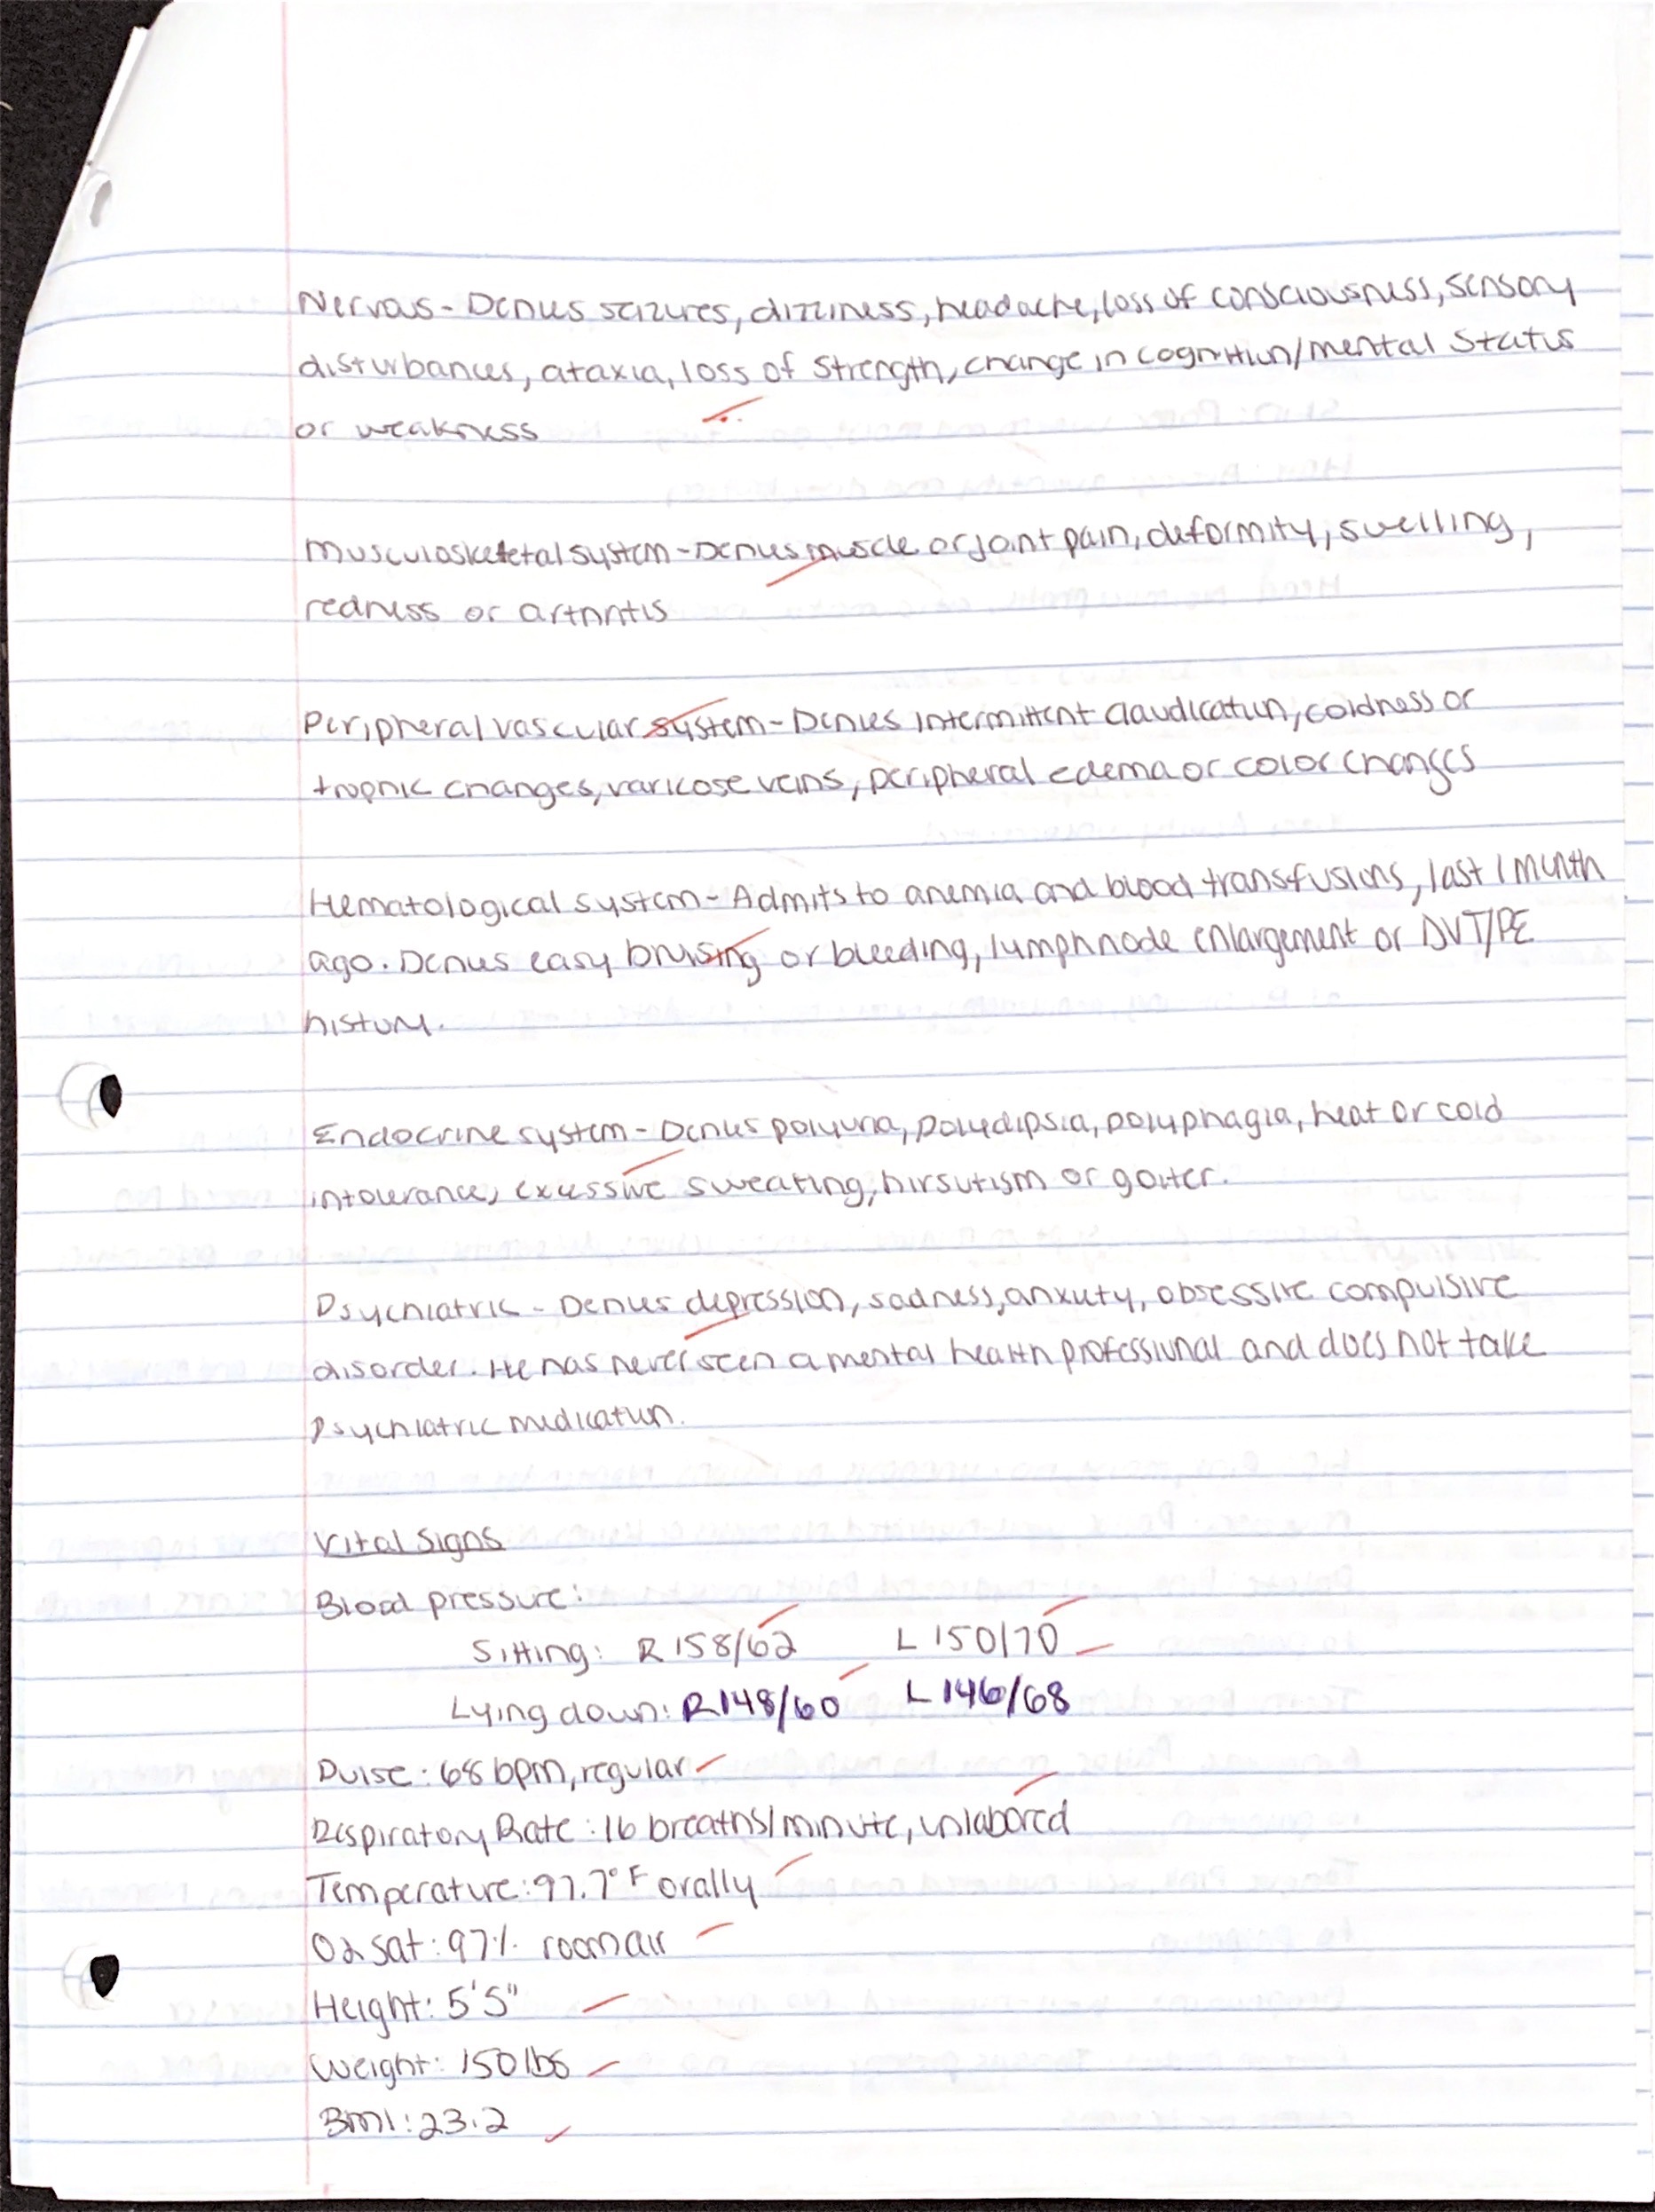 Nervous - Denies seizures, dizziness, headache, loss of consciousness, sensory
disturbances, ataxia, loss of strength, change in cognition/mental status
or weakness
Musculoskeletal system - Denies muscle or joint pain, deformity, swelling,
redness or arthritis
Peripheral vascular system - Denies intermittent claudication, coldness or
trophic changes, varicose veins, peripheral edema or color changes
Hematological system - Admits to anemia and blood transfusions, last 1 month
ago. Denies easy bruising or bleeding, lymph node enlargement or DVT/PE
history.
Endocrine system - Denies polyuria, polydipsia, polyphagia, heat or cold
intolerance, excessive sweating, hirsutism or goiter.
Psychiatric - Denies depression, sadness, anxiety, obsessive compulsive
disorder. He has never seen a mental health professional and does not take
psychiatric medication.
Vital Signs
Blood pressure:
Sitting: R 158/62 L 150/70
Lying down: R 148/60 L 146/68
Pulse: 68 bpm, regular
Respiratory Rate: 16 breaths/minute, unlabored
Temperature: 97.7° F orally
O2 sat: 97% room air
Height: 5'5"
Weight: 150 lbs
BMI: 23.2